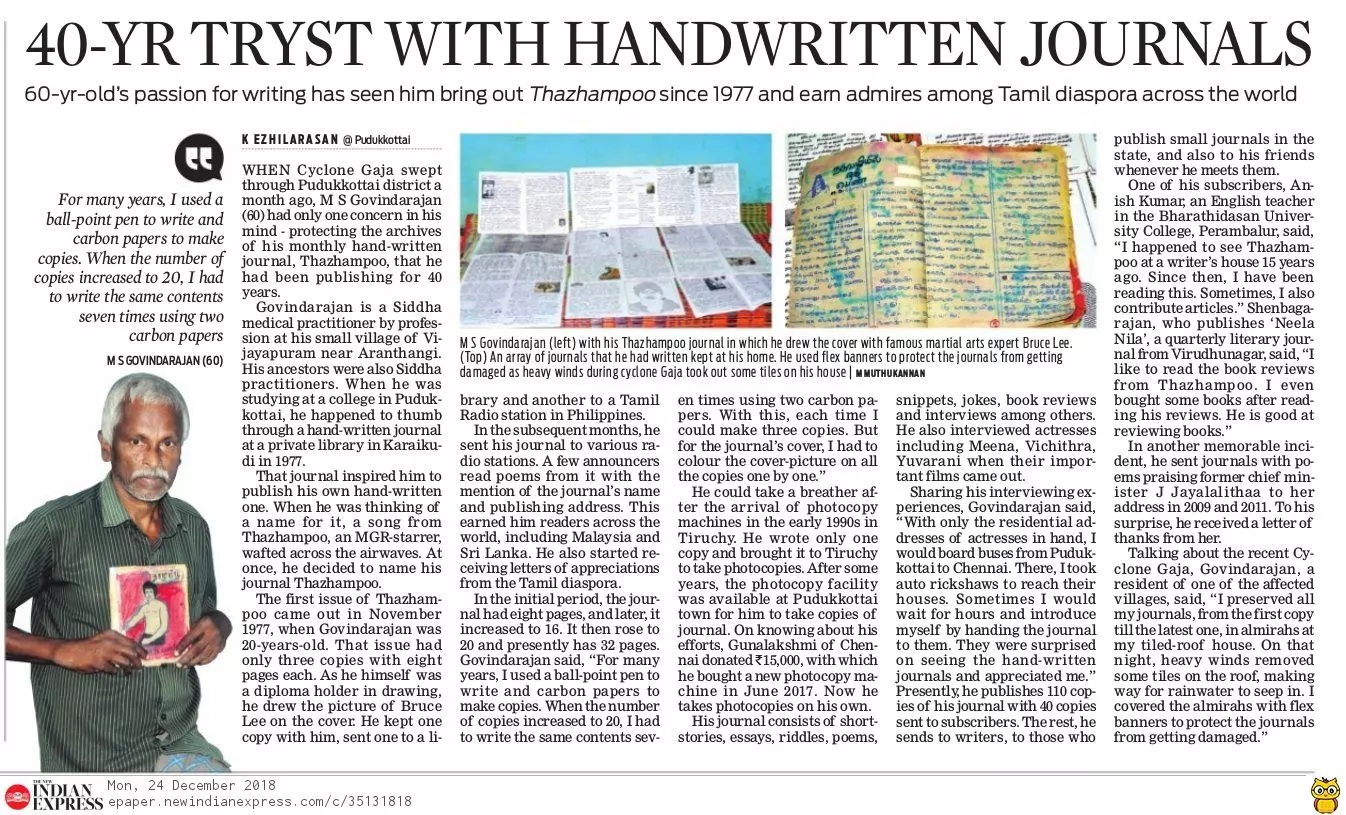 40-YR TRYST WITH HANDWRITTEN JOURNALS
60-yr-old’s passion for writing has seen him bring out Thazhampoo since 1977 and earn admires among Tamil diaspora across the world
For many years, I used a
ball-point pen to write and
carbon papers to make
copies. When the number of
copies increased to 20, I had
to write the same contents
seven times using two
carbon papers
M S GOVINDARAJAN (60)
K EZHILARASAN @ Pudukkottai
WHEN Cyclone Gaja swept
through Pudukkottai district a
month ago, M S Govindarajan
(60) had only one concern in his
mind - protecting the archives
of his monthly hand-written
journal, Thazhampoo, that he
had been publishing for 40
years.
Govindarajan is a Siddha
medical practitioner by profes-
sion at his small village of Vi-
jayapuram near Aranthangi.
His ancestors were also Siddha
practitioners. When he was
studying at a college in Puduk-
kottai, he happened to thumb
through a hand-written journal
at a private library in Karaiku-
di in 1977.
That journal inspired him to
publish his own hand-written
one. When he was thinking of
a name for it, a song from
Thazhampoo, an MGR-starrer,
wafted across the airwaves. At
once, he decided to name his
journal Thazhampoo.
The first issue of Thazham-
poo came out in November
1977, when Govindarajan was
20-years-old. That issue had
only three copies with eight
pages each. As he himself was
a diploma holder in drawing,
he drew the picture of Bruce
Lee on the cover. He kept one
copy with him, sent one to a li-
M S Govindarajan (left) with his Thazhampoo journal in which he drew the cover with famous martial arts expert Bruce Lee.
(Top) An array of journals that he had written kept at his home. He used flex banners to protect the journals from getting
damaged as heavy winds during cyclone Gaja took out some tiles on his house | M MUTHUKANNAN
brary and another to a Tamil
Radio station in Philippines.
In the subsequent months, he
sent his journal to various ra-
dio stations. A few announcers
read poems from it with the
mention of the journal’s name
and publishing address. This
earned him readers across the
world, including Malaysia and
Sri Lanka. He also started re-
ceiving letters of appreciations
from the Tamil diaspora.
In the initial period, the jour-
nal had eight pages, and later, it
increased to 16. It then rose to
20 and presently has 32 pages.
Govindarajan said, “For many
years, I used a ball-point pen to
write and carbon papers to
make copies. When the number
of copies increased to 20, I had
to write the same contents sev-
en times using two carbon pa-
pers. With this, each time I
could make three copies. But
for the journal’s cover, I had to
colour the cover-picture on all
the copies one by one.”
He could take a breather af-
ter the arrival of photocopy
machines in the early 1990s in
Tiruchy. He wrote only one
copy and brought it to Tiruchy
to take photocopies. After some
years, the photocopy facility
was available at Pudukkottai
town for him to take copies of
journal. On knowing about his
efforts, Gunalakshmi of Chen-
nai donated ₹15,000, with which
he bought a new photocopy ma-
chine in June 2017. Now he
takes photocopies on his own.
His journal consists of short-
stories, essays, riddles, poems,
snippets, jokes, book reviews
and interviews among others.
He also interviewed actresses
including Meena, Vichithra,
Yuvarani when their impor-
tant films came out.
Sharing his interviewing ex-
periences, Govindarajan said,
“With only the residential ad-
dresses of actresses in hand, I
would board buses from Puduk-
kottai to Chennai. There, I took
auto rickshaws to reach their
houses. Sometimes I would
wait for hours and introduce
myself by handing the journal
to them. They were surprised
on seeing the hand-written
journals and appreciated me.”
Presently, he publishes 110 cop-
ies of his journal with 40 copies
sent to subscribers. The rest, he
sends to writers, to those who
publish small journals in the
state, and also to his friends
whenever he meets them.
One of his subscribers, An-
ish Kumar, an English teacher
in the Bharathidasan Univer-
sity College, Perambalur, said,
“I happened to see Thazham-
poo at a writer’s house 15 years
ago. Since then, I have been
reading this. Sometimes, I also
contribute articles.” Shenbaga-
rajan, who publishes ‘Neela
Nila’, a quarterly literary jour-
nal from Virudhunagar, said, “I
like to read the book reviews
from Thazhampoo. I even
bought some books after read-
ing his reviews. He is good at
reviewing books.”
In another memorable inci-
dent, he sent journals with po-
ems praising former chief min-
ister J Jayalalithaa to her
address in 2009 and 2011. To his
surprise, he received a letter of
thanks from her.
Talking about the recent Cy-
clone Gaja, Govindarajan, a
resident of one of the affected
villages, said, “I preserved all
my journals, from the first copy
till the latest one, in almirahs at
my tiled-roof house. On that
night, heavy winds removed
some tiles on the roof, making
way for rainwater to seep in. I
covered the almirahs with flex
banners to protect the journals
from getting damaged.”
THE NEW
INDIAN
EXPRESS
Mon, 24 December 2018
epaper.newindianexpress.com/c/35131818